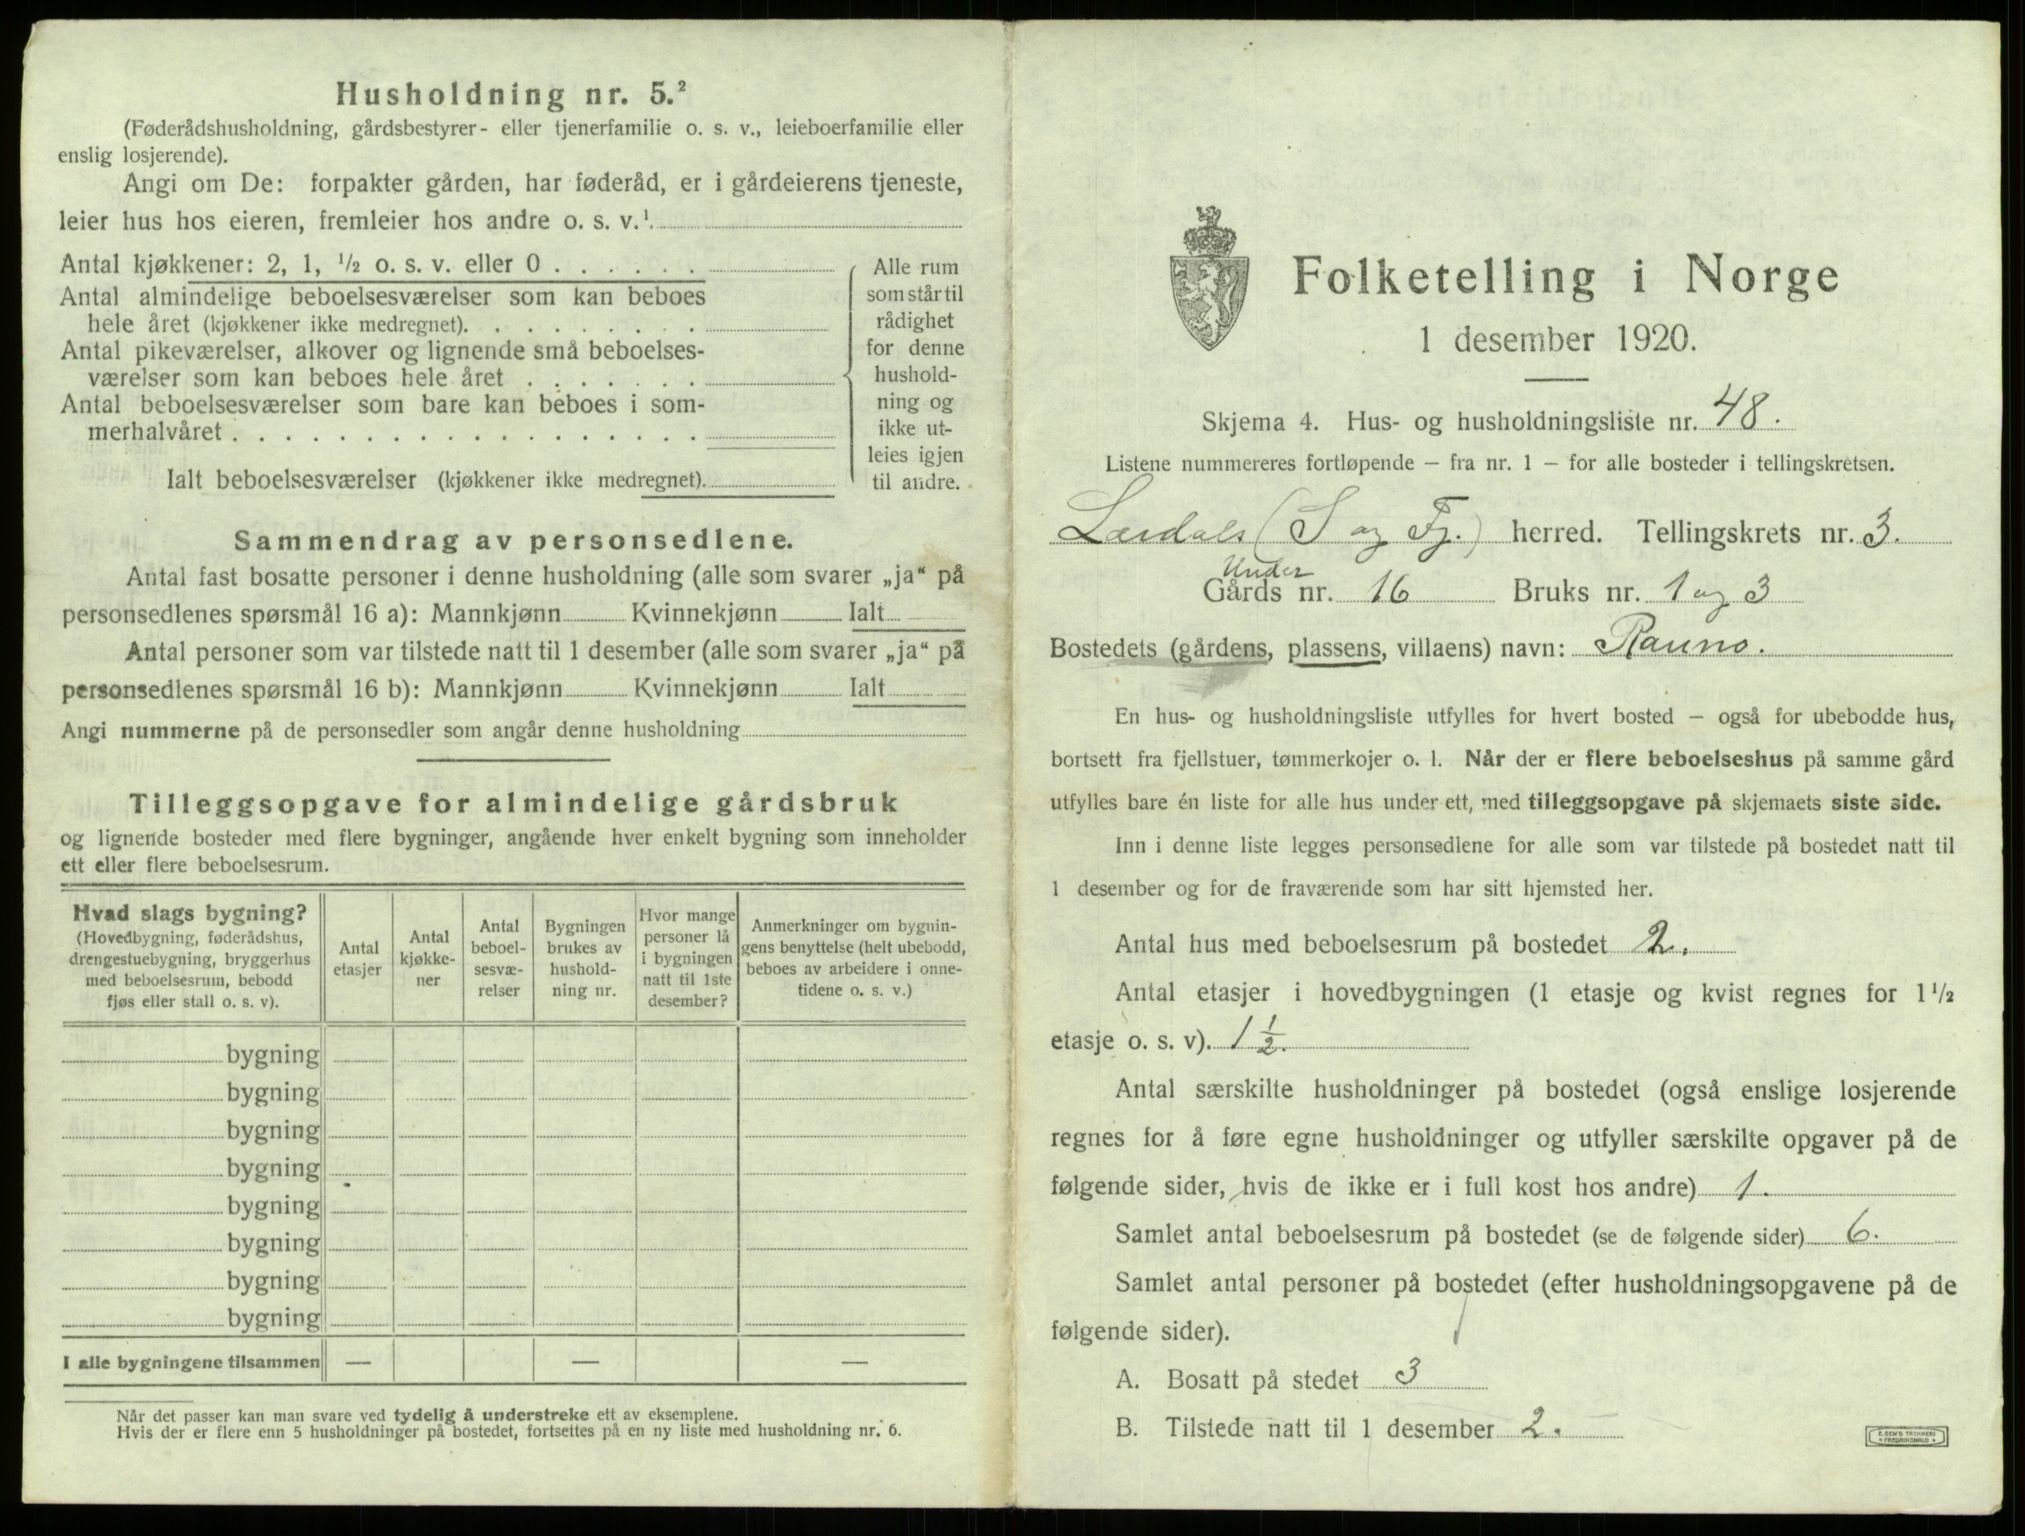 Husholdning nr. 5.²
(Føderådshusholdning, gårdsbestyrer- eller tjenerfamilie o. s. v., leieboerfamilie eller
enslig losjerende).
Angi om De: forpakter gården, har føderåd, er i gårdeierens tjeneste,
leier hus hos eieren, fremleier hos andre o. s. v.¹
Antal kjøkkener: 2, 1, ½ o. s. v. eller 0 . . . . . .
Antal almindelige beboelsesværelser som kan beboes
hele året (kjøkkener ikke medregnet). . . . . . . . .
Antal pikeværelser, alkover og lignende små beboelses-
værelser som kan beboes hele året . . . . . . .
Antal beboelsesværelser som bare kan beboes i som-
merhalvåret . . . . . . . . . . . . . . . . . .
Ialt beboelsesværelser (kjøkkener ikke medregnet).
Alle rum
som står til
rådighet
for denne
hushold-
ning og
ikke ut-
leies igjen
til andre.
Sammendrag av personsedlene.
Antal fast bosatte personer i denne husholdning (alle som svarer „ja“ på
personsedlenes spørsmål 16 a): Mannkjønn Kvinnekjønn Ialt
Antal personer som var tilstede natt til 1 desember (alle som svarer „ja“ på
personsedlenes spørsmål 16 b): Mannkjønn Kvinnekjønn Ialt
Angi nummerne på de personsedler som angår denne husholdning
Tilleggsopgave for almindelige gårdsbruk
og lignende bosteder med flere bygninger, angående hver enkelt bygning som inneholder
ett eller flere beboelsesrum.
Hvad slags bygning?
(Hovedbygning, føderådshus,
drengestuebygning, bryggerhus
med beboelsesrum, bebodd
fjøs eller stall o. s. v).
Antal
etasjer
Antal
kjøkke-
ner
Antal
beboel-
sesvæ-
relser
Bygningen
brukes av
hushold-
ning nr.
Hvor mange
personer lå
i bygningen
natt til 1ste
desember?
Anmerkninger om bygnin-
gens benyttelse (helt ubebodd,
beboes av arbeidere i onne-
tidene o. s. v.)
bygning
bygning
bygning
bygning
bygning
bygning
bygning
bygning
I alle bygningene tilsammen — — —
Når det passer kan man svare ved tydelig å understreke ett av eksemplene.
Hvis der er flere enn 5 husholdninger på bostedet, fortsettes på en ny liste med husholdning nr. 6.
Folketelling i Norge
1 desember 1920.
Skjema 4. Hus- og husholdningsliste nr. 48.
Listene nummereres fortløpende – fra nr. 1 – for alle bosteder i tellingskretsen.
Lærdals (S og Fj.) herred. Tellingskrets nr. 3.
Under
Gårds nr. 16 Bruks nr. 1 og 3
Bostedets (gårdens, plassens, villaens) navn: Rauno.
En hus- og husholdningsliste utfylles for hvert bosted – også for ubebodde hus,
bortsett fra fjellstuer, tømmerkojer o. l. Når der er flere beboelseshus på samme gård
utfylles bare én liste for alle hus under ett, med tilleggsopgave på skjemaets siste side.
Inn i denne liste legges personsedlene for alle som var tilstede på bostedet natt til
1 desember og for de fraværende som har sitt hjemsted her.
Antal hus med beboelsesrum på bostedet 2.
Antal etasjer i hovedbygningen (1 etasje og kvist regnes for 1½
etasje o. s. v). 1 ½.
Antal særskilte husholdninger på bostedet (også enslige losjerende
regnes for å føre egne husholdninger og utfyller særskilte opgaver på de
følgende sider, hvis de ikke er i full kost hos andre) 1.
Samlet antal beboelsesrum på bostedet (se de følgende sider) 6.
Samlet antal personer på bostedet (efter husholdningsopgavene på de
følgende sider).
A. Bosatt på stedet 3
B. Tilstede natt til 1 desember 2.